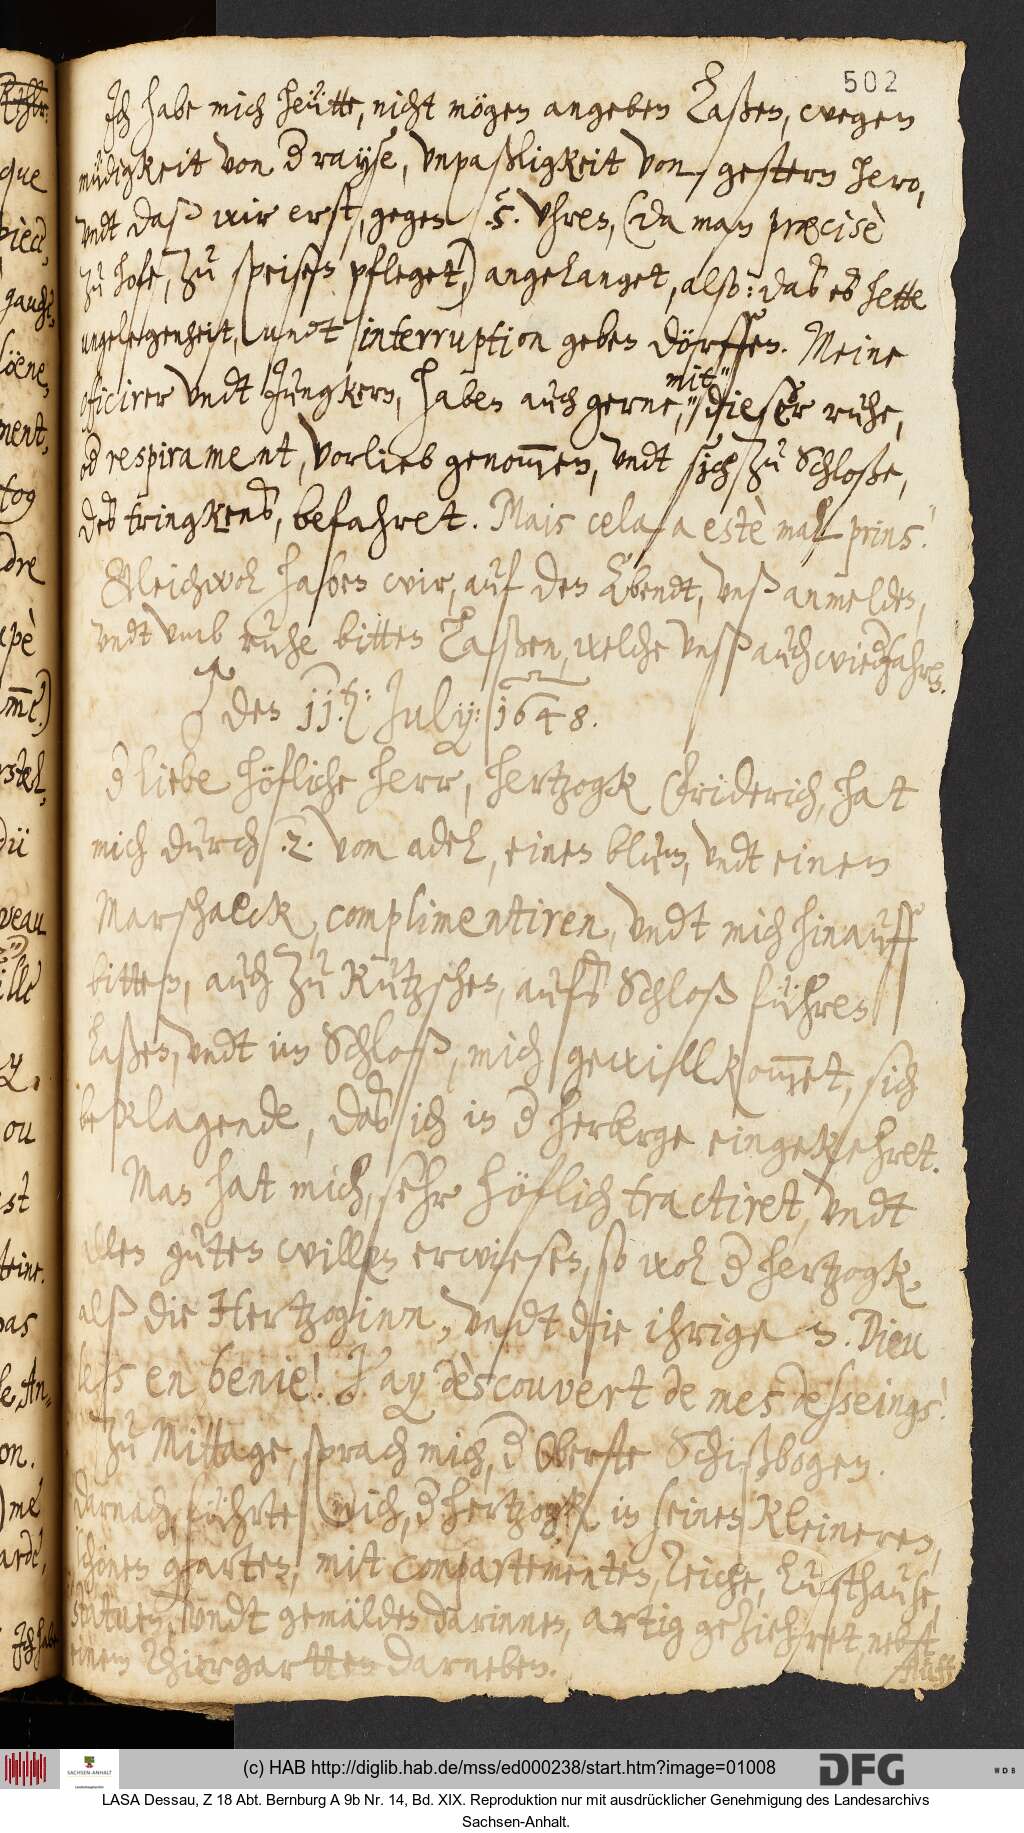 502
Ich habe mich heütte, nicht mögen angeben laßen, wegen
müdigkeit von d rayse, vnpaßligkeit von gestern hero,
vndt daß wir erst, gegen .5. Vhren, (da man præcisè
zu hofe, zu speisen pfleget,) angelanget, also: das es hette
ungelegenheit, undt interruption geben dörffen. Meine
officirer vndt Jungkern, haben auch gerne, mit dieser ruhe,
od respirament, vorlieb genom̅en, vndt sich zu Schloße,
des tringkens, befahret. Mais cela a estè mal prins.
Gleichwol haben wir, auf den Abendt, vnß anmelden,
vndt vmb ruhe bitten laßen, welche vnß auch wiedfahren.
♂ den 11. July: 1648.
d liebe höfliche herr, hertzogk Friderich, hat
mich durch .2. vom adel, einen blum, vndt einen
Marschalck, complimentiren, vndt mich hinauff
bitten, auch zu Kutzschen, aufs Schloß führen
laßen, vndt im Schloß, mich gewillkom̅et, sich
beklagende, das ich in d herberge eingekehret.
Man hat mich, sehr höflich tractiret, vndt
allen guten willen erwiesen, so wol d hertzogk,
alß die Hertzoginn, vndt die ihrigen. Dieu
les en benie! J'ay dèscouvert de mes desseings!
Zu Mittage, sprach mich, d Oberste Schißbogen.
darnach, führte mich, d hertzogk in seinen kleineren,
schönen garten, mit compartementen, Teiche, Lusthause,
statuen, vndt gemälden darinnen, artig geziehret, nebst
einem Thiergartten darneben.
Auff
(c) HAB http://diglib.hab.de/mss/ed000238/start.htm?image=01008
SACHSEN-ANHALT
DFG
WDB
LASA Dessau, Z 18 Abt. Bernburg A 9b Nr. 14, Bd. XIX. Reproduktion nur mit ausdrücklicher Genehmigung des Landesarchivs
Sachsen-Anhalt.